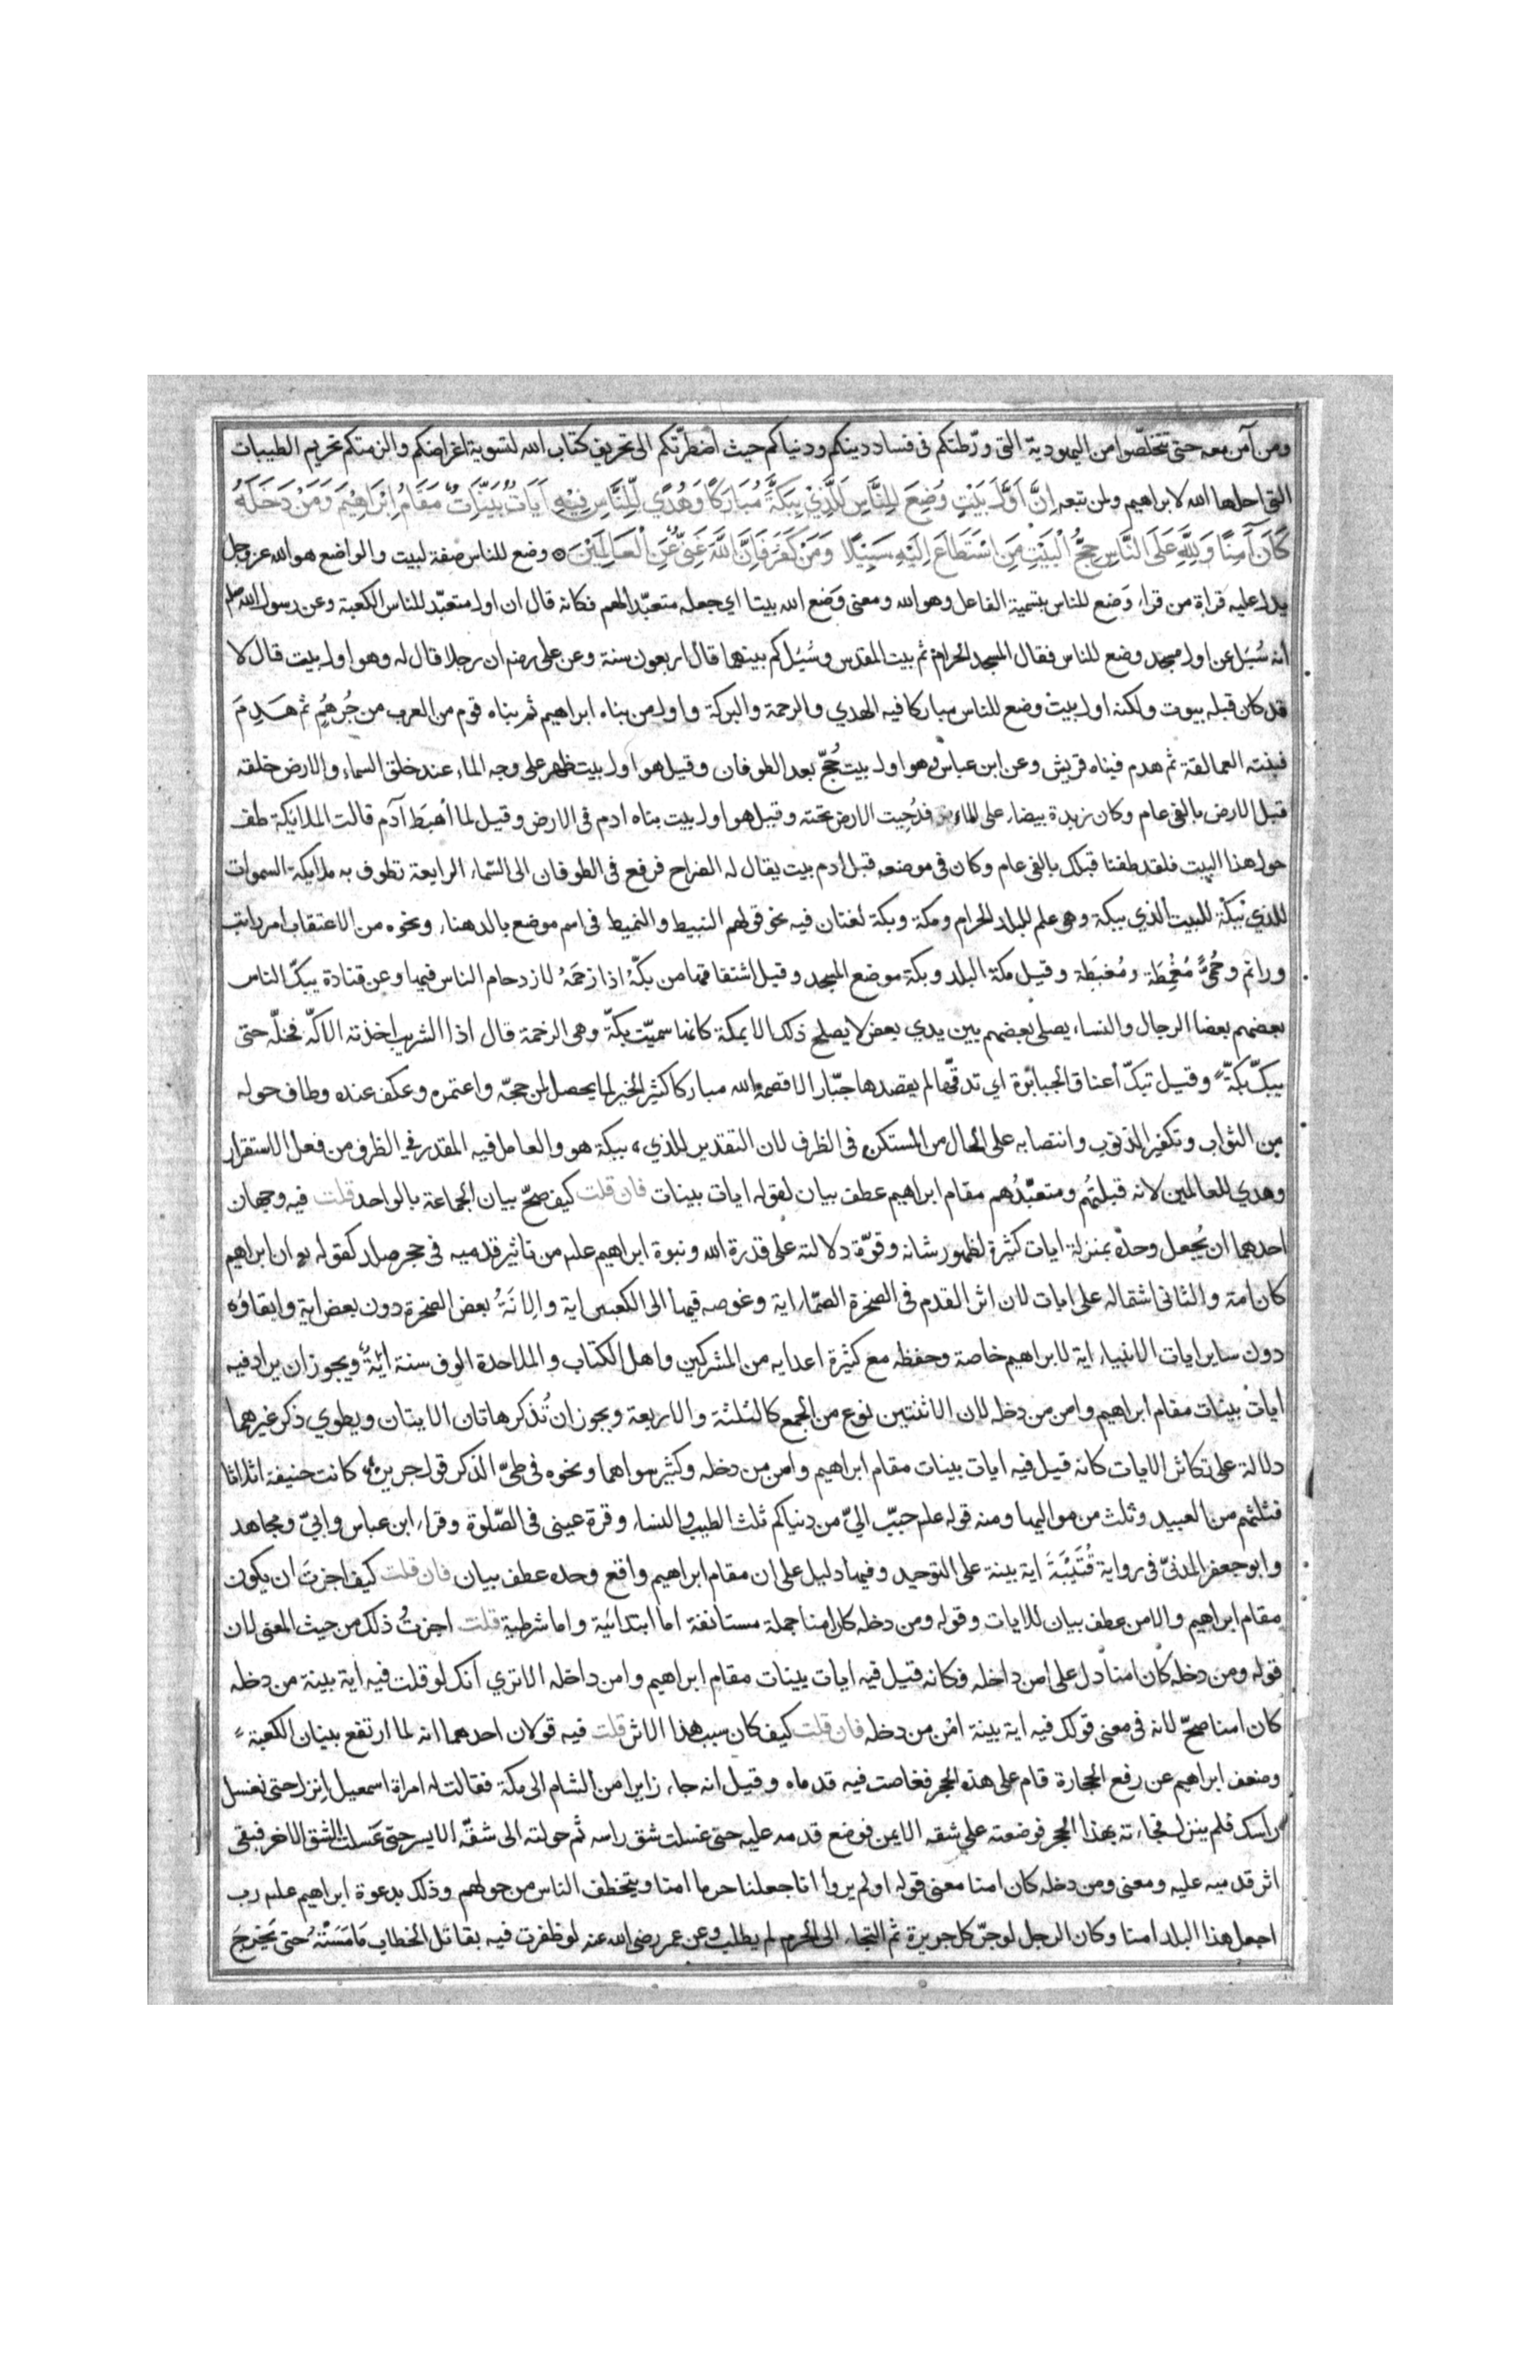 ومن آمن معه حتى تتخلّصوا من اليهودية التى ورّطتكم فى فساد دينكم ودنياكم حيث اضطرّتكم الى تحريف كتاب الله لتسوية اغراضكم والزمتكم تحريم الطيبات
التى احلها الله لابراهيم ولمن تبعه اِنَّ اَوَّلَ بَيْتٍ وُضِعَ لِلنَّاسِ لَلَّذِيْ بِبَكَّةَ مُبَارَكًا وَهُدًي لِّلنَّاسِ فِيْهِ اٰيَاتٌ بَيِّنَاتٌ مَقَامُ اِبْرَاهِيْمَ وَمَنْ دَخَلَهُ
كَانَ آمِنًا وَلِلَّهِ عَلَى النَّاسِ حِجُّ الْبَيْتِ مَنِ اسْتَطَاعَ اِلَيْهِ سَبِيْلًا وَمَنْ كَفَرَ فَاِنَّ اللَّهَ غَنِيٌّ عَنِ الْعَالَمِيْنَ ۝ وضع للناس صفة لبيت والواضع هو الله عز وجل
يدل عليه قراة من قراء وَضع للناس بتسمية الفاعل وهو الله ومعنى وَضع الله بيتا اي جعله متعبّدا لهم فكانه قال ان اول متعبّد للناس الكعبة وعن رسول الله صلعم
انه سُئِل عن اول مسجد وضع للناس فقال المسجد الحرام ثم بيت المقدس وسُئِل كم بينهما قال اربعون سنة وعن على رضه ان رجلا قال له وهو اول بيت قال لا
قد كان قبله بيوت ولكنه اول بيت وضع للناس مباركا فيه الهدي والرحمة والبركة واول من بناه ابراهيم ثم بناه قوم من العرب من جُرهُمٍ ثم هَدِمَ
فبنته العمالقة ثم هدم فبناه قريش وعن ابن عباس وهو اول بيت حُجّ بعد الطوفان وقيل هو اول بيت ظهر على وجه الماء عند خلق السماء والارض خلقه
قبل الارض بالفى عام وكان زبدة بيضاء على الماء فدُحِيت الارض تحته وقيل هو اول بيت بناه ادم فى الارض وقيل لما اُهبِطَ آدم قالت الملائيكة طف
حول هذا البيت فلقد طفنا قبلك بالفى عام وكان فى موضعه قبل ادم بيت يقال له الضراح فرفع فى الطوفان الى السّماء الرابعة تطوف به ملائكة السموات
للذي ببكة للبيت الذي ببكة وهى علم للبلد الحرام ومكة وبكة لغتان فيه نحو قولهم النبيط والنميط فى اسم موضع بالدهناء ونحوه من الاعتقاب امر راتب
وراتم وحُمّىً مُغْمِطَة ومُغبَطِة وقيل مكة البلد وبكة موضع المسجد وقيل اشتقاقها من بكّهُ اذا زحَمَهُ لازدحام الناس فيها وعن قتادة يبكّ الناس
بعضهم بعضا الرجال والنساء يصلى بعضهم بين يدي بعض لا يصلح ذلك الا بمكة كانما سميّت ببكّة وهى الزحمة قال اذا الشريب اخذته الاكّه فخلّه حتى
يبكّ بكّة وقيل تبكّ أعناق الجبابرة اي تدقّها لم يقصدها جبّار الا قصمه الله مباركا كثير الخير لما يحصل لمن حجّه واعتمره وعكف عنده وطاف حوله
من الثواب وتكفير الذنوب وانتصابه على الحال من المستكن فى الظرف لان التقدير للذي ببكة هو والعامل فيه المقدر في الظرف من فعل الاستقرار
وهدي للعالمين لانه قبلتُهم ومتعبَّدُهم مقام ابراهيم عطف بيان لقوله ايات بينات فان قلت كيف صحّ بيان الجماعة بالواحد قلت فيه وجهان
احدهما ان يُجعل وحده بمنزلة ايات كثيرة لظهور شانه وقوّة دلالته على قدرة الله ونبوة ابراهيم علم من تاثير قدميه فى حجر صلد كقوله تع ان ابراهيم
كان امة والثانى اشتماله على ايات لان اثر القدم فى الصخرة الصمّاء اية وغوصه فيها الى الكعبين اية واِلانَةُ بعض الصخرة دون بعض اية وابقاؤه
دون ساير ايات الانبياء اية لابراهيم خاصة وحفظه مع كثرة اعدايه من المشركين واهل الكتاب والملاحدة الوف سنة ايةٌ ويجوز ان يراد فيه
ايات بينات مقام ابراهيم وامن من دخله لان الاثنتين نوع من الجمع كالثلثة والاربعة ويجوز ان تُذكر هاتان الايتان ويطوي ذكر غيرهما
دلالة على تكاثر الايات كانه قيل فيه ايات بينات مقام ابراهيم وامن من دخله وكثير سواهما ونحوه فى طىّ الذكر قول جرير كانت حنيفة اثلاثا
فثلثهم من العبيد وثلث من مواليها ومنه قوله علم حبّب اليّ من دنياكم ثلث الطيب والنساء وقرة عينى فى الصّلوة وقراء ابن عباس وابىّ ومجاهد
وابو جعفر المدنىّ فى رواية قُتَيْبَةَ اية بينة على التوحيد وفيها دليل على ان مقام ابراهيم واقع وحده عطف بيان فان قلت كيف اجزتَ ان يكون
مقام ابراهيم والامن عطف بيان للايات وقوله ومن دخله كان امنا جملة مستانفة اما ابتدائية واما شرطية قلت اجزتُ ذلك من حيث المعنى لان
قوله ومن دخله كان امنا دل على امن داخله فكانه قيل فيه ايات بينات مقام ابراهيم وامن داخله الا تري انك لو قلت فيه اية بينة من دخله
كان امنا صحّ لانه فى معنى قولك فيه اية بينة امْن من دخله فان قلت كيف كان سبب هذا الاثر قلت فيه قولان احدهما انه لما ارتفع بنيان الكعبة
وضعف ابراهيم عن رفع الحجارة قام على هذه الحجر فغاصت فيه قدماه وقيل انه جاء زايرا من الشام الى مكة فقالت له امراة اسمعيل اِنزل حتى نغسل
راسك فلم ينزل فجاءته بهذا الحجر فوضعته علي شقه الايمن فوضع قدمه عليه حتى غسلت شق راسه ثم حولته الى شقّه الايسر حتى غسلت الشق الاخر فبقى
اثر قدميه عليه ومعنى ومن دخله كان امنا معنى قوله اولم يروا انا جعلنا حرما امنا ويتخطف الناس من حولهم وذلك بدعوة ابراهيم علم رب
اجعل هذا البلد امنا وكان الرجل لو جرّ كل جريرة ثم التجاء الى الحرم لم يطلب وعن عمر رضى الله عنه لو ظفرت فيه بقاتل الخطاب مَا مَسَسْتُهُ حتى يَخرجَ